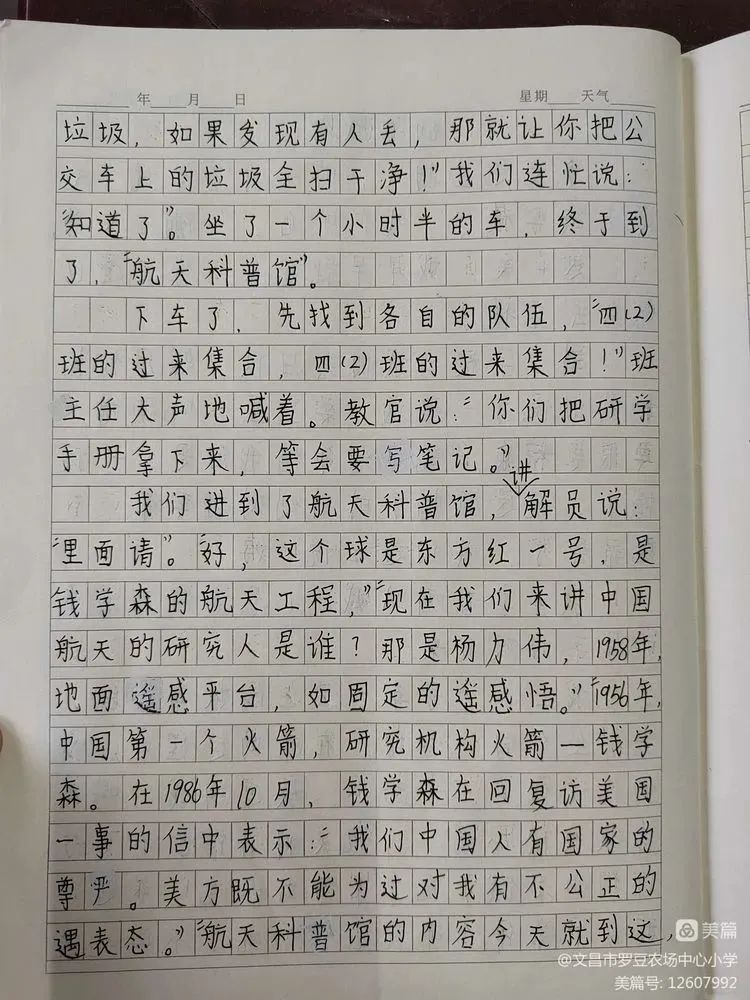 年 月 日 星期 天气
垃圾，如果发现有人丢，那就让你把公
交车上的垃圾全扫干净！”我们连忙说：
“知道了”。坐了一个小时半的车，终于到
了，“航天科普馆”。
下车了，先找到各自的队伍，“四(2)
班的过来集合，四(2)班的过来集合！”班
主任大声地喊着。教官说：“你们把研学
手册拿下来，等会要写笔记。”
我们进到了航天科普馆，讲解员说：
“里面请”。“好，这个球是东方红一号，是
钱学森的航天工程，”“现在我们来讲中国
航天的研究人是谁？那是杨力伟，1958年，
地面遥感平台，如固定的遥感悟。”“1956年，
中国第一个火箭，研究机构火箭—钱学
森。在1986年10月，钱学森在回复访美国
一事的信中表示：“我们中国人有国家的
尊严。美方既不能为过对我有不公正的
遇表态。”“航天科普馆的内容今天就到这，
美篇
@文昌市罗豆农场中心小学
美篇号: 12607992